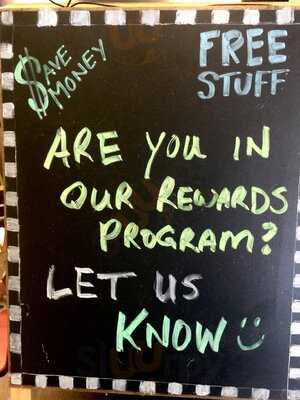 $AVE
MONEY
FREE
STUFF
ARE YOU IN
OUR REWARDS
PROGRAM?
LET US
KNOW